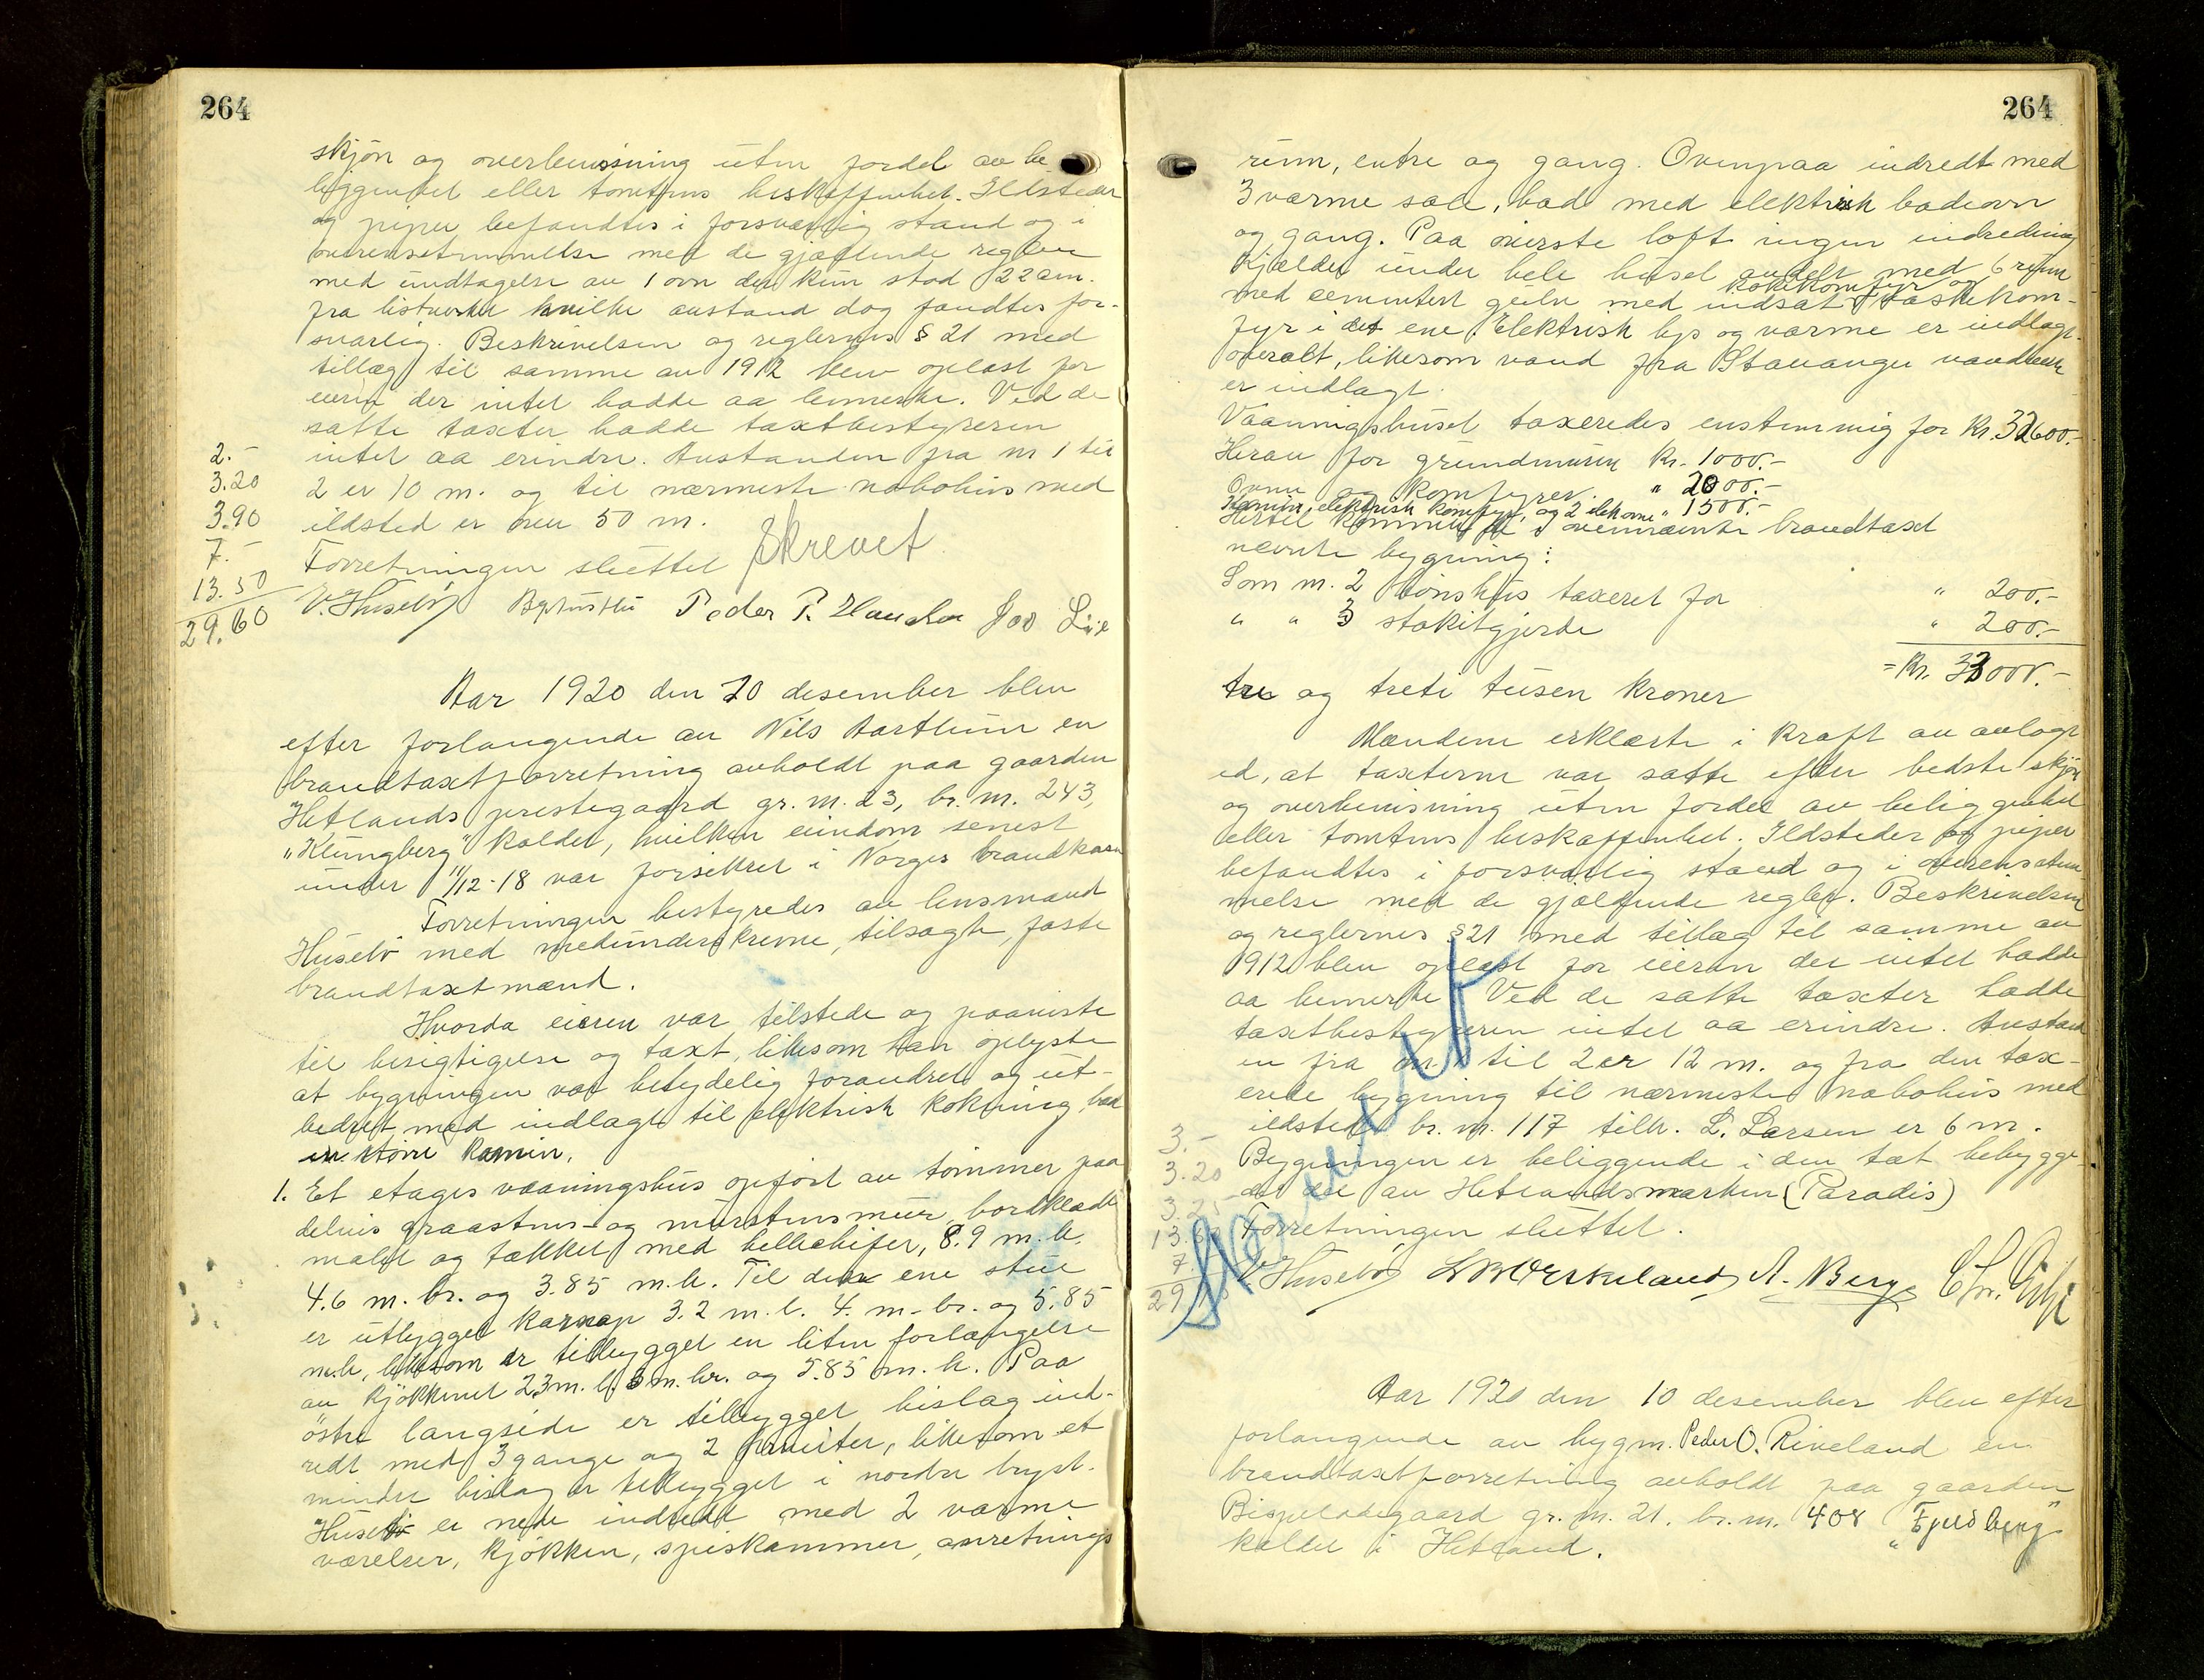 264
skjøn og overbevisning uten fordel av be
liggenhet eller tomtens beskaffenhet. Ildsteder
og piper befandtes i forsvarlig stand og i
overensstemmelse med de gjældende regler
med undtagelse av 1 ovn der kun stod 22 cm.
fra listverket hvilke avstand dog fandtes for-
svarlig. Beskrivelsen og reglernes § 21 med
tillæg til samme av 1912 blev oplæst for
eieren der intet hadde aa bemerke. Ved de
satte taxter hadde taxtbestyreren
intet aa erindre. Avstanden fra nr 1 til
2 er 10 m. og til nærmeste nabohus med
ildsted er over 50 m.
Forretningen sluttet Skrevet
2.-
3.20
3.90
7.-
13.50
29.60
V. Husebø Peder P. Haushou Joo Lie
Aar 1920 den 20 desember blev
efter forlangende av Nils Aarthun en
brandtaxtforretning avholdt paa gaarden
Hetlands prestegaard gr. nr. 23, br. nr. 243,
"Klungberg" kaldet, hvilken eiendom senest
under 11/12-18 var forsikret i Norges brandkasse
Forretningen bestyredes av lensmand
Husebø med medunderskrevne, tilsagte, faste
brandtaxtmænd.
Hvorda eieren var tilstede og paaviste
til besigtigelse og taxt, likesom han oplyste
at bygningen var betydelig forandret og ut-
bedret med indlagt til elektrisk kokning, bad
en større kamin.
1. Et etages vaaningshus opført av tømmer paa
delvis graastens- og murstensmur, bordklædt
malet og tækket med helleskifer, 8.9 m. l.
4.6 m. br. og 3.85 m. h. Til den ene stue
er utbygget karnap 3.2 m. l. 4. m. br. og 5.85
m.h, likesom er tilbygget en liten forlængelse
av kjøkkenet 2.3 m. l. 3 m. br. og 5.85 m. h. Paa
østre langside er tilbygget bislag ind-
redt med 3 gange og 2 priveter, likesom et
mindre bislag er tilbygget i nordre bryst.
Huset er nede indredt med 2 varme
værelser, kjøkken, spiskammer, anretnings
264
rum, entre og gang. Ovenpaa indredt med
3 varme sale, bad med elektrisk badeovn
og gang. Paa øverste loft ingen indredning
Kjælder under hele huset avdelt med 6 rum
kokekomfyr og
med cementert gulv med indsat vaskekom-
fyr i det ene. Elektrisk lys og varme er indlagt
overalt, likesom vand fra Stavanger vandverk
er indlagt.
Vaaningshuset taxeredes enstemmig for Kr. 32600.-
Herav for grundmuren Kr. 1000.-
Ovne og komfyrer " 2000.-
Kamin, elektrisk komfyr, og 2 elek. ovne " 1500.-
Hertil kommer de i ovennævnte brandtaxt
nævnte bygning:
Som nr. 2 hønshus taxeret for " 200.-
" " 3 stakitgjerde " 200.-
= Kr. 33000.-
tre og treti tusen kroner
Mændene erklærte i kraft av avlagt
ed, at taxterne var satte efter bedste skjøn
og overbevisning uten fordel av beliggenhet
eller tomtens beskaffenhet. Ildsteder og piper
befandtes i forsvarlig stand og i overensstem
melse med de gjældende regler. Beskrivelsen
og reglernes § 21 med tillæg til samme av
1912 blev oplæst for eieren der intet hadde
aa bemerke. Ved de satte taxter hadde
taxtbestyreren intet aa erindre. Avstand
en fra nr. 1 til 2 er 12 m. og fra den tax-
erede bygning til nærmeste nabohus med
ildsted br. nr. 117 tilh. L. Larsen er 6 m.
Bygningen er beliggende i den tæt bebygge-
de del av Hetlandsmarken (Paradis)
Forretningen sluttet.
3.-
3.20
3.25
13.
7.
29
Skrevet
Husebø A. Berg
Aar 1920 den 10 desember blev efter
forlangende av bygm. Peder O. Riveland en
brandtaxtforretning avholdt paa gaarden
Bispeladegaard gr. nr. 21. br. nr. 408 "Fjeldberg"
kaldet i Hetland.